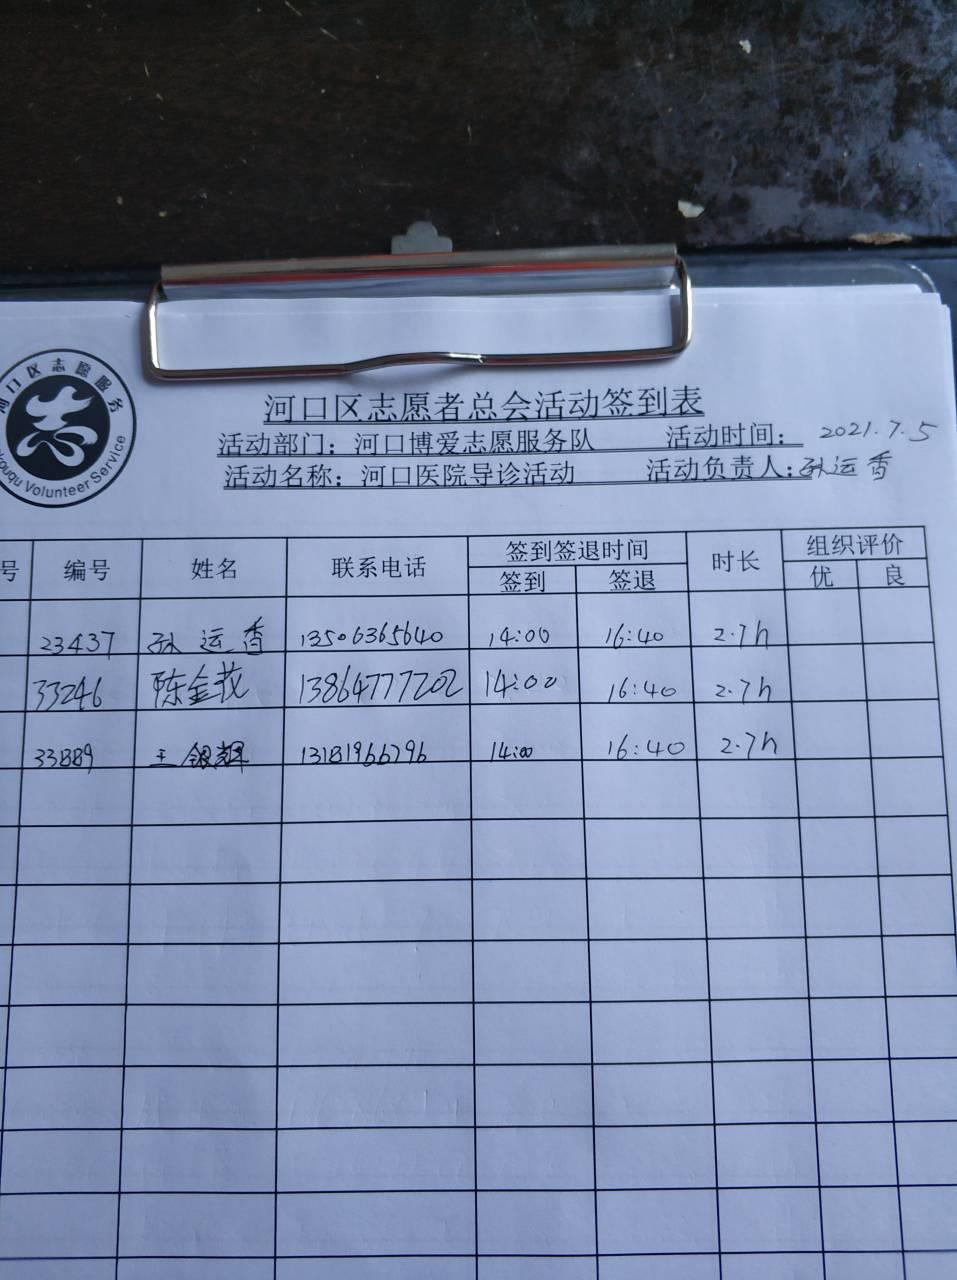 河口区志愿服务
Hekouqu Volunteer Service
河口区志愿者总会活动签到表
活动部门：河口博爱志愿服务队 活动时间： 2021.7.5
活动名称：河口医院导诊活动 活动负责人：孙运香
号 编号 姓名 联系电话 签到签退时间 时长 组织评价
签到 签退 优 良
23437 孙运香 13506365640 14:00 16:40 2.7h
33246 陈金花 13864777202 14:00 16:40 2.7h
33889 王银翠 13181966796 14:00 16:40 2.7h